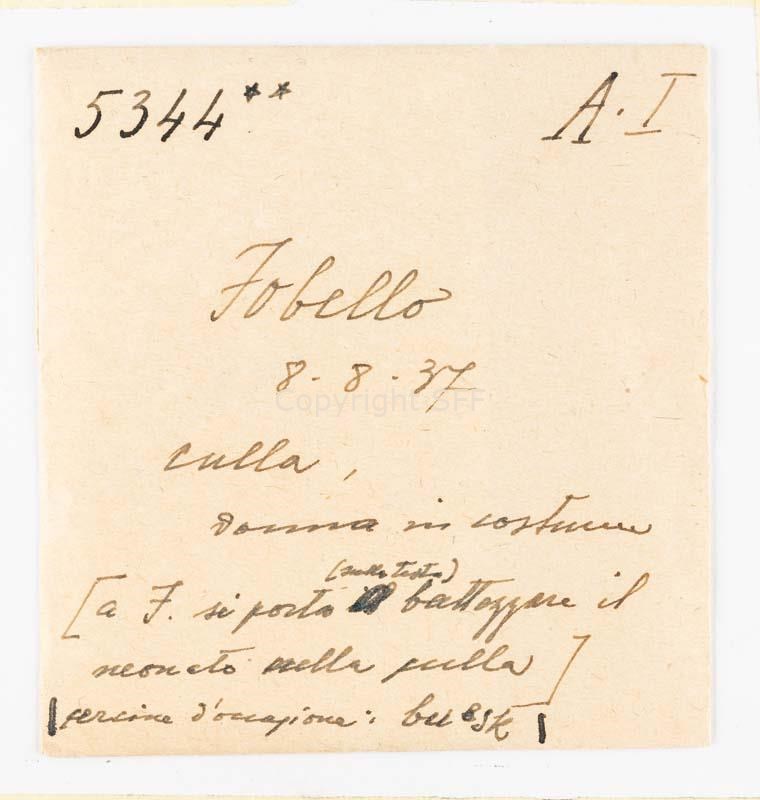 5344** A. I
Fobello
8. 8. 37
Copyright SFF
culla,
donna in costume
(sulla testa)
[a F. si porta a battezzare il
neonato nella culla]
|cercine d'occasione: buesk|